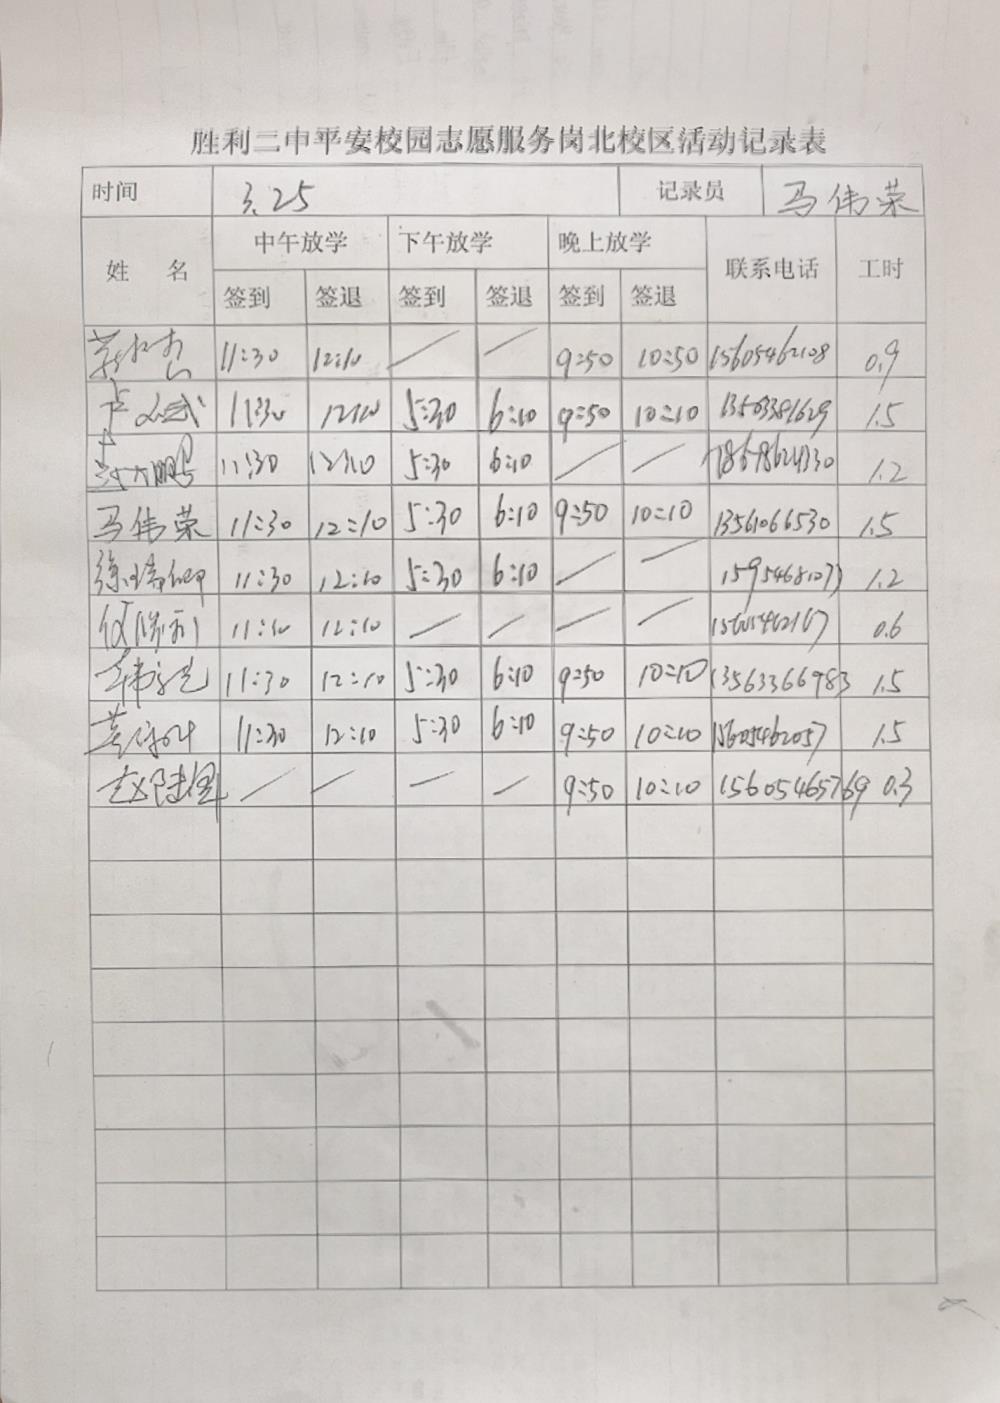 胜利二中平安校园志愿服务岗北校区活动记录表
时间 3.25 记录员 马伟荣
姓 名 中午放学 下午放学 晚上放学 联系电话 工时
签到 签退 签到 签退 签到 签退
11:30 12:10 / / 9:50 10:50 15605462108 0.9
11:30 12:10 5:30 6:10 9:50 10:10 13503381629 1.5
11:30 12:10 5:30 6:10 / / 1.2
马伟荣 11:30 12:10 5:30 6:10 9:50 10:10 13561066530 1.5
11:30 12:10 5:30 6:10 / / 15954681073 1.2
12:10 / / / / 15605462167 0.6
11:30 12:10 5:30 6:10 9:50 10:10 13563366983 1.5
11:30 12:10 5:30 6:10 9:50 10:10 15605462057 1.5
/ / / / 9:50 10:10 15605465769 0.3